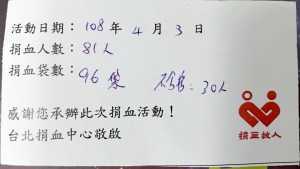 活動日期：108年4月3日
捐血人數：81人
捐血袋數：96袋 不合格：30人
感謝您承辦此次捐血活動！
台北捐血中心敬啟
捐血救人